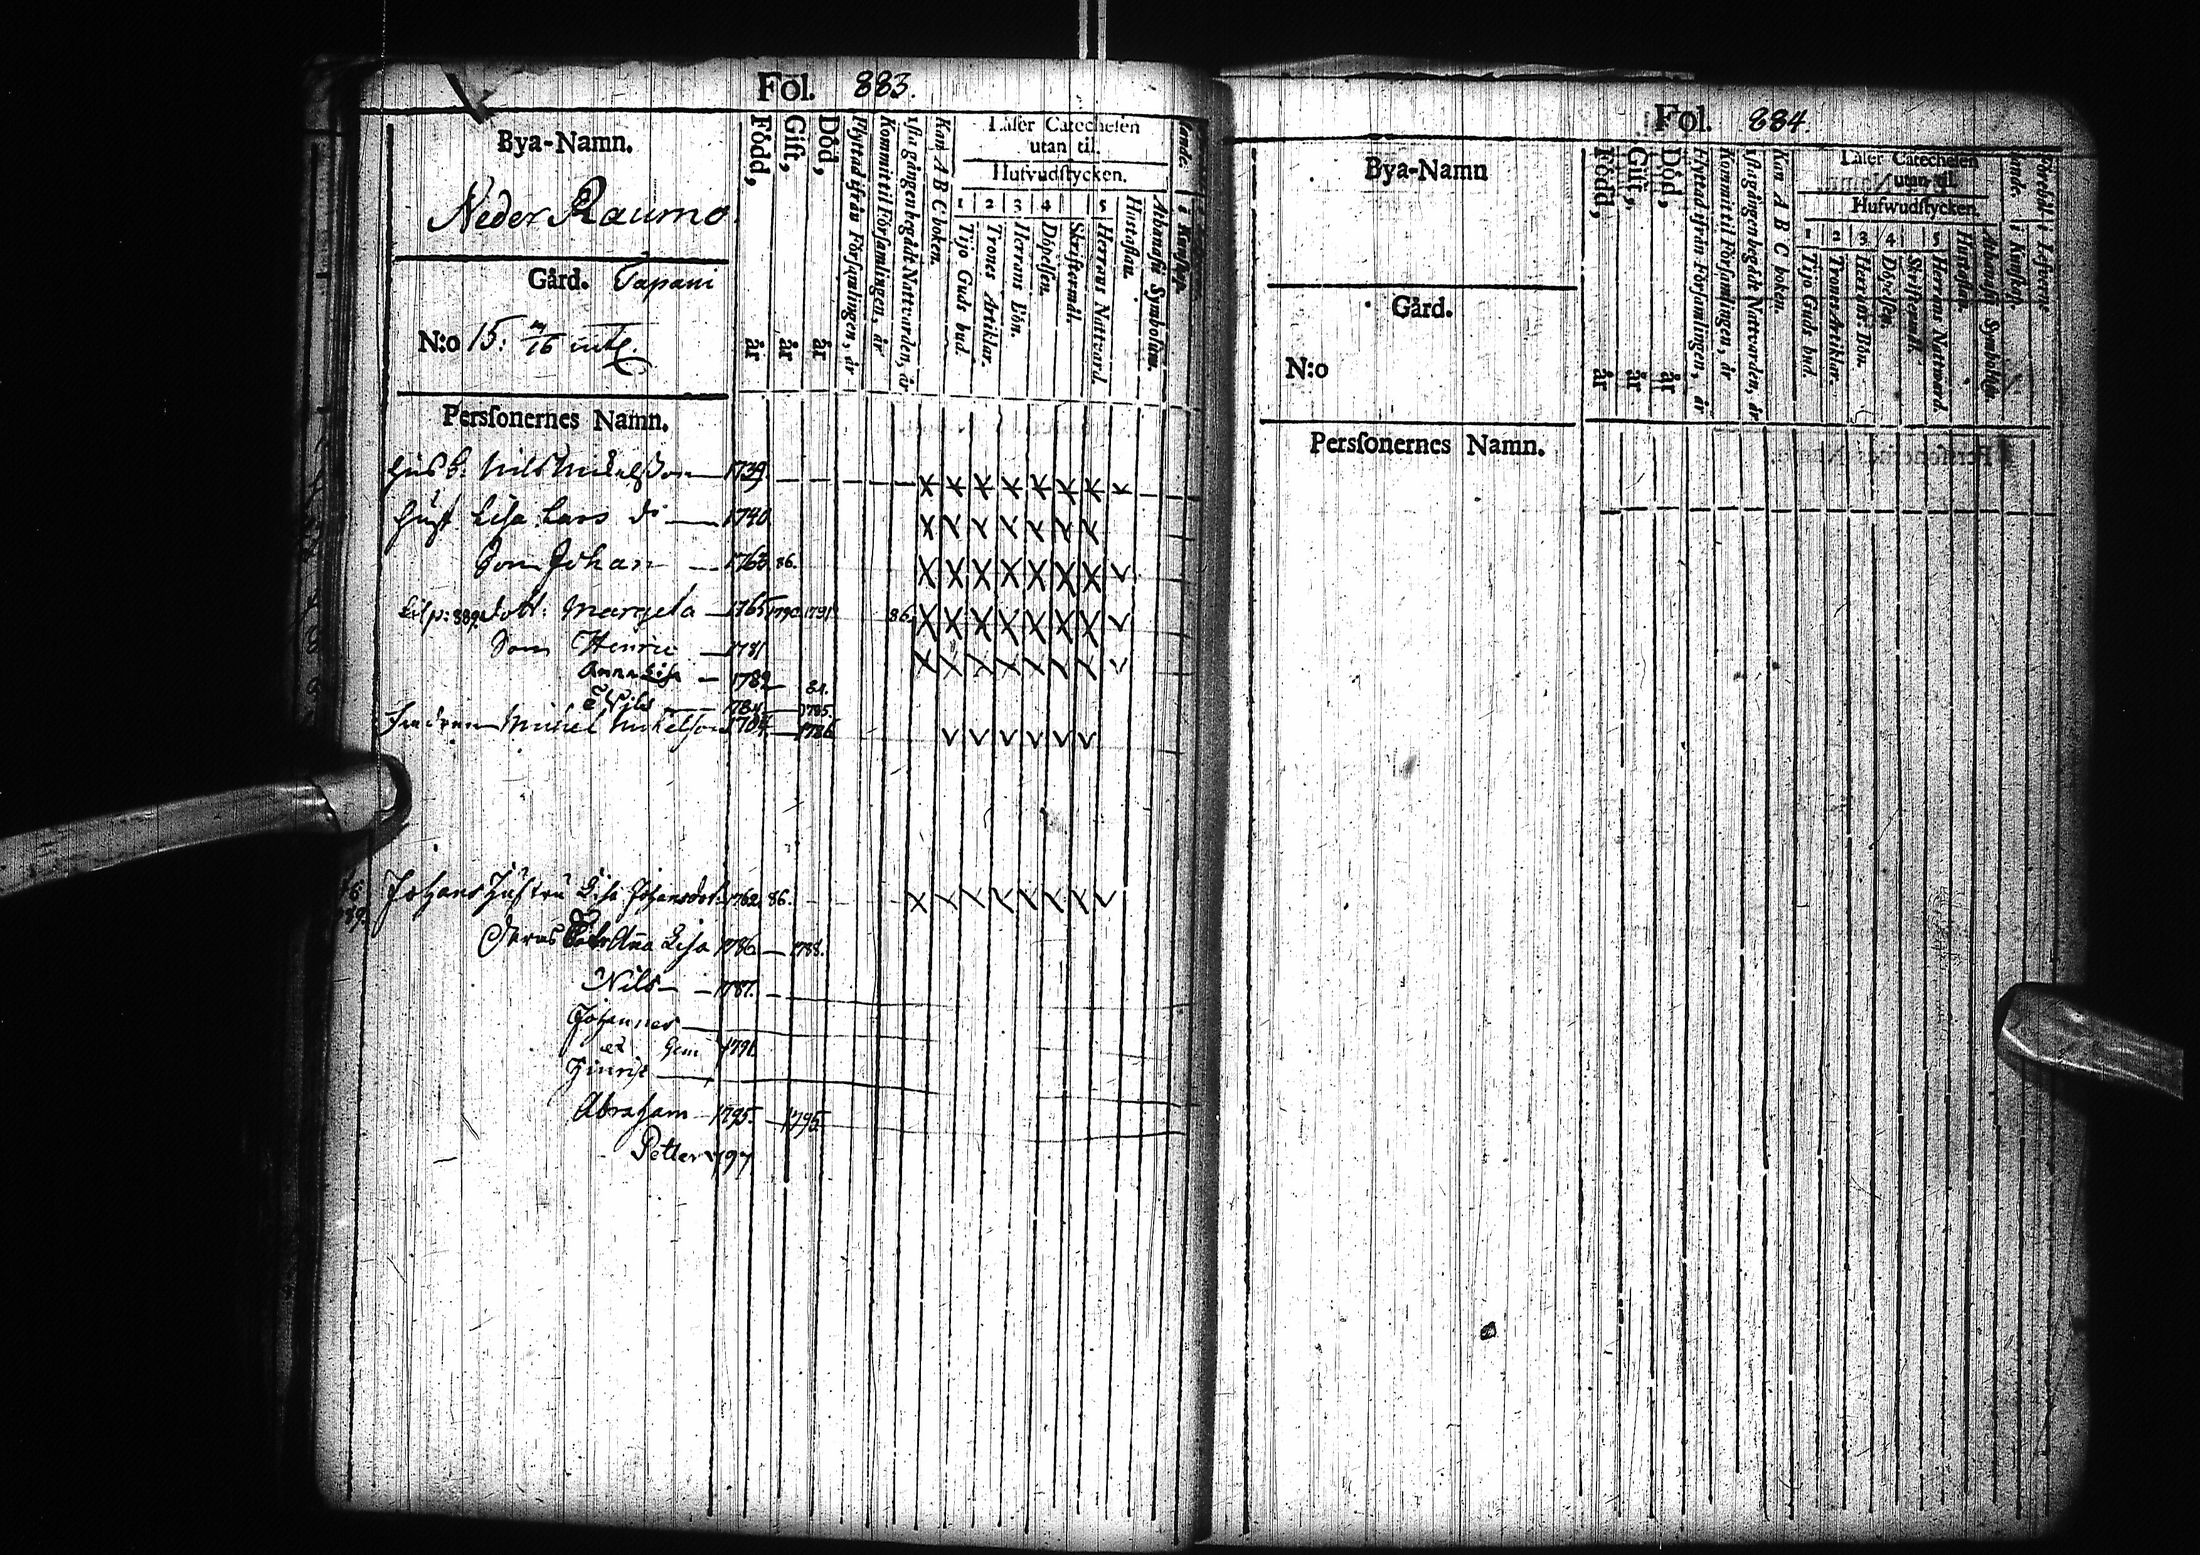 Fol. 883.
Bya-Namn.
Neder Raumo.
Gård. Tapani
N:o 15:
Perſonernes Namn.
Född, år
Gift, år
Död, år
Flyttad ifrån Förſamlingen, år
Kommit til Förſamlingen, år
1ſta gången begådt Nattvarden, år
Kan A B C boken.
Läſer Catecheſen
utan til.
Hufvudſtycken.
1 2 3 4 5
Tijo Guds bud.
Trones Artiklar.
Herrans Bön.
Döpelſen.
Skriftermål.
Herrans Nattvard.
Huſtaflan.
Athanaſii Symbolum.
i Kunſkap.
Husb: Nils Mickelsson 1739
Hust Lisa Lars dr 1740
Son Johan 1763 86.
p: 889. dott: Margeta 1765 1790 1791 86.
Son Henric 1781
Anna Lisa 1782 82.
1784 1785.
Michel Mickelsson 1704 1786
Johans Hustru Lisa Johansdot: 1762 86.
Deras Anna Lisa 1786 1788.
Nils 1787.
Johannes
et Gem 1791
Hinric
Abraham 1795. 1795.
Petter 1797
Fol. 884.
Bya-Namn
Gård.
N:o
Perſonernes Namn.
Född, år
Gift, år
Död, år
Flyttad ifrån Förſamlingen, år
Kommit til Förſamlingen, år
1ſta gången begådt Nattvarden, år
Kan A B C boken.
Läſer Catecheſen
utan til.
Hufwudſtycken.
1 2 3 4 5
Tijo Guds bud.
Trones Artiklar.
Herrans Bön.
Döpelſen.
Skriftermål.
Herrans Nattward.
Huſtaflan.
Athanaſii Symbolum.
i Kunſkap.
i Lefverne